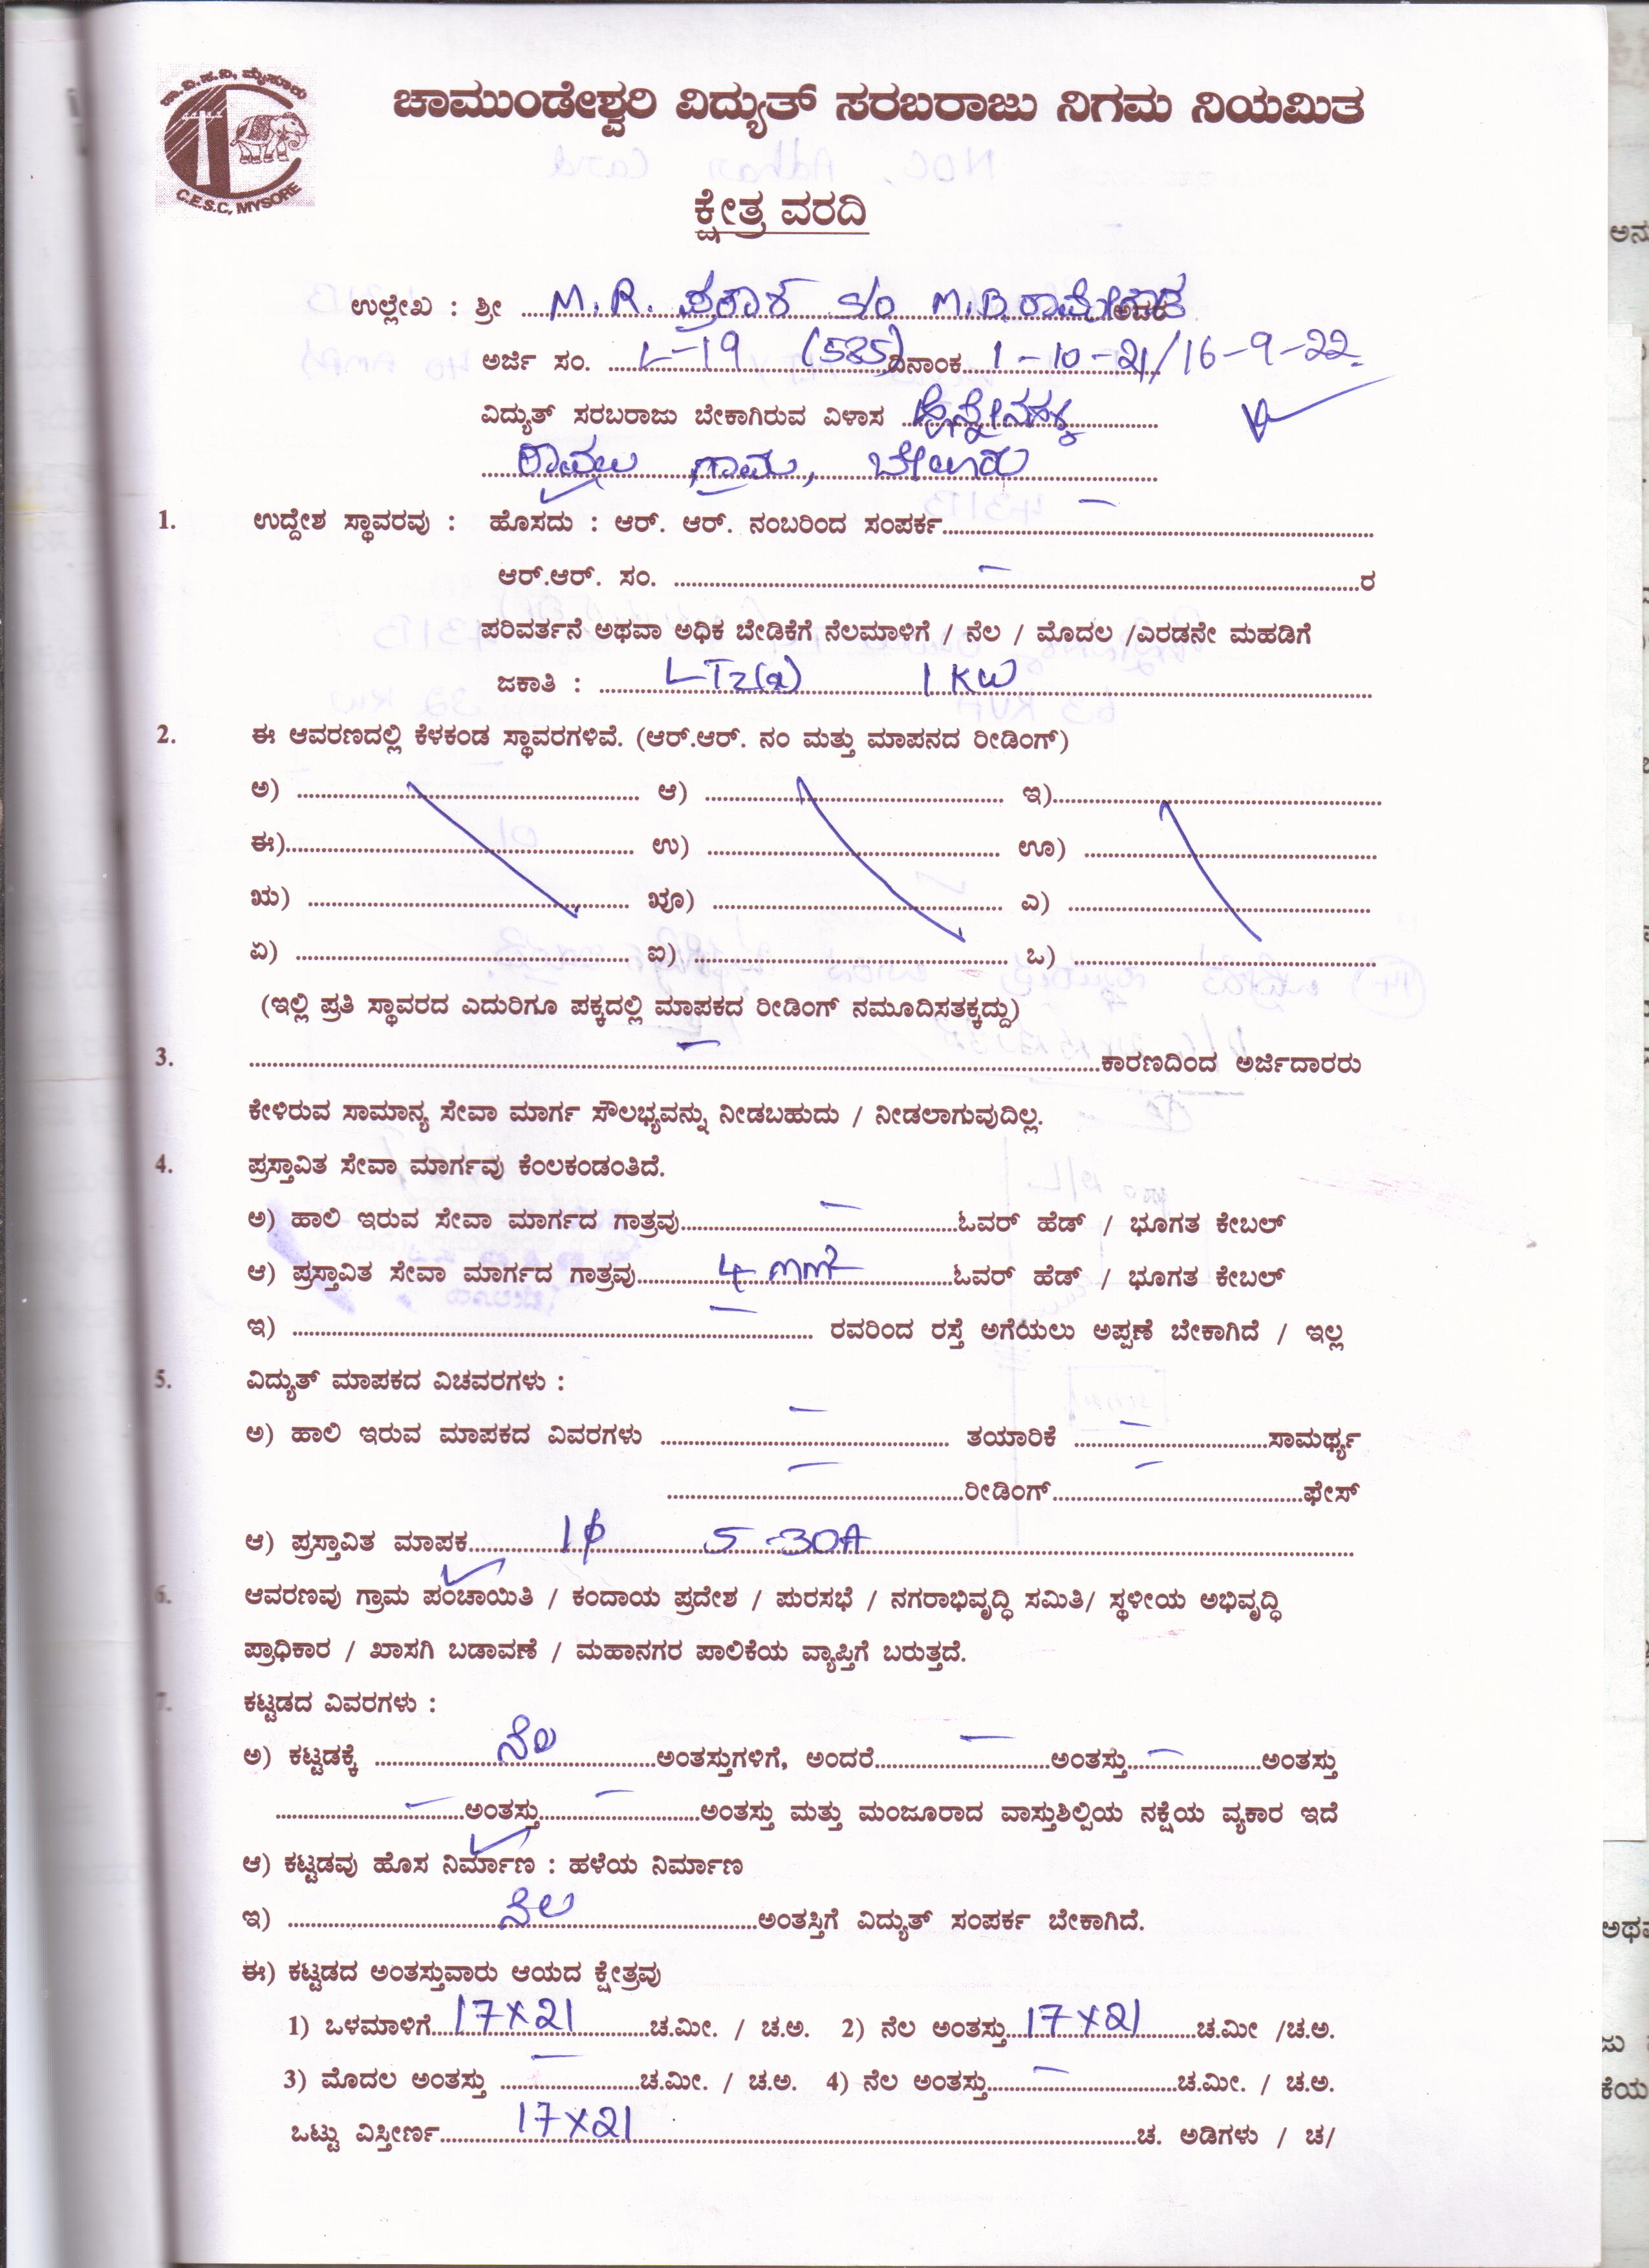 ಚಾ.ವಿ.ಸ.ನಿ, ಮೈಸೂರು
C.E.S.C, MYSORE
ಚಾಮುಂಡೇಶ್ವರಿ ವಿದ್ಯುತ್ ಸರಬರಾಜು ನಿಗಮ ನಿಯಮಿತ
ಕ್ಷೇತ್ರ ವರದಿ
ಉಲ್ಲೇಖ : ಶ್ರೀ M.R. ಪ್ರಕಾಶ S/o M.D. ರಾಮೇಗೌಡ ಅವರ
ಅರ್ಜಿ ಸಂ. L-19 (585) ದಿನಾಂಕ 1-10-21/16-9-22
ವಿದ್ಯುತ್ ಸರಬರಾಜು ಬೇಕಾಗಿರುವ ವಿಳಾಸ
ಗ್ರಾಮ, ಬೇಲೂರು
1. ಉದ್ದೇಶ ಸ್ಥಾವರವು : ಹೊಸದು : ಆರ್. ಆರ್. ನಂಬರಿಂದ ಸಂಪರ್ಕ –
ಆರ್.ಆರ್. ಸಂ. – ರ
ಪರಿವರ್ತನೆ ಅಥವಾ ಅಧಿಕ ಬೇಡಿಕೆಗೆ ನೆಲಮಾಳಿಗೆ / ನೆಲ / ಮೊದಲ /ಎರಡನೇ ಮಹಡಿಗೆ
ಜಕಾತಿ : LT2(a) 1 KW
2. ಈ ಆವರಣದಲ್ಲಿ ಕೆಳಕಂಡ ಸ್ಥಾವರಗಳಿವೆ. (ಆರ್.ಆರ್. ನಂ ಮತ್ತು ಮಾಪನದ ರೀಡಿಂಗ್)
ಅ) ಆ) ಇ)
ಈ) ಉ) ಊ)
ಋ) ೠ) ಎ)
ಏ) ಐ) ಒ)
(ಇಲ್ಲಿ ಪ್ರತಿ ಸ್ಥಾವರದ ಎದುರಿಗೂ ಪಕ್ಕದಲ್ಲಿ ಮಾಪಕದ ರೀಡಿಂಗ್ ನಮೂದಿಸತಕ್ಕದ್ದು)
3. – ಕಾರಣದಿಂದ ಅರ್ಜಿದಾರರು
ಕೇಳಿರುವ ಸಾಮಾನ್ಯ ಸೇವಾ ಮಾರ್ಗ ಸೌಲಭ್ಯವನ್ನು ನೀಡಬಹುದು / ನೀಡಲಾಗುವುದಿಲ್ಲ.
4. ಪ್ರಸ್ತಾವಿತ ಸೇವಾ ಮಾರ್ಗವು ಕೆಂಲಕಂಡಂತಿದೆ.
ಅ) ಹಾಲಿ ಇರುವ ಸೇವಾ ಮಾರ್ಗದ ಗಾತ್ರವು – ಓವರ್ ಹೆಡ್ / ಭೂಗತ ಕೇಬಲ್
ಆ) ಪ್ರಸ್ತಾವಿತ ಸೇವಾ ಮಾರ್ಗದ ಗಾತ್ರವು 4 mm² ಓವರ್ ಹೆಡ್ / ಭೂಗತ ಕೇಬಲ್
ಇ) – ರವರಿಂದ ರಸ್ತೆ ಅಗೆಯಲು ಅಪ್ಪಣೆ ಬೇಕಾಗಿದೆ / ಇಲ್ಲ
5. ವಿದ್ಯುತ್ ಮಾಪಕದ ವಿಚವರಗಳು :
ಅ) ಹಾಲಿ ಇರುವ ಮಾಪಕದ ವಿವರಗಳು – ತಯಾರಿಕೆ – ಸಾಮರ್ಥ್ಯ
– ರೀಡಿಂಗ್ – ಫೇಸ್
ಆ) ಪ್ರಸ್ತಾವಿತ ಮಾಪಕ 1ϕ 5-30A
6. ಆವರಣವು ಗ್ರಾಮ ಪಂಚಾಯಿತಿ / ಕಂದಾಯ ಪ್ರದೇಶ / ಪುರಸಭೆ / ನಗರಾಭಿವೃದ್ಧಿ ಸಮಿತಿ/ ಸ್ಥಳೀಯ ಅಭಿವೃದ್ಧಿ
ಪ್ರಾಧಿಕಾರ / ಖಾಸಗಿ ಬಡಾವಣೆ / ಮಹಾನಗರ ಪಾಲಿಕೆಯ ವ್ಯಾಪ್ತಿಗೆ ಬರುತ್ತದೆ.
7. ಕಟ್ಟಡದ ವಿವರಗಳು :
ಅ) ಕಟ್ಟಡಕ್ಕೆ ನೆಲ ಅಂತಸ್ತುಗಳಿಗೆ, ಅಂದರೆ – ಅಂತಸ್ತು – ಅಂತಸ್ತು
– ಅಂತಸ್ತು – ಅಂತಸ್ತು ಮತ್ತು ಮಂಜೂರಾದ ವಾಸ್ತುಶಿಲ್ಪಿಯ ನಕ್ಷೆಯ ವ್ಯಕಾರ ಇದೆ
ಆ) ಕಟ್ಟಡವು ಹೊಸ ನಿರ್ಮಾಣ : ಹಳೆಯ ನಿರ್ಮಾಣ
ಇ) ನೆಲ ಅಂತಸ್ತಿಗೆ ವಿದ್ಯುತ್ ಸಂಪರ್ಕ ಬೇಕಾಗಿದೆ.
ಈ) ಕಟ್ಟಡದ ಅಂತಸ್ತುವಾರು ಆಯದ ಕ್ಷೇತ್ರವು
1) ಒಳಮಾಳಿಗೆ 17x21 ಚ.ಮೀ. / ಚ.ಅ. 2) ನೆಲ ಅಂತಸ್ತು 17x21 ಚ.ಮೀ /ಚ.ಅ.
3) ಮೊದಲ ಅಂತಸ್ತು – ಚ.ಮೀ. / ಚ.ಅ. 4) ನೆಲ ಅಂತಸ್ತು – ಚ.ಮೀ. / ಚ.ಅ.
ಒಟ್ಟು ವಿಸ್ತೀರ್ಣ 17x21 ಚ. ಅಡಿಗಳು / ಚ/